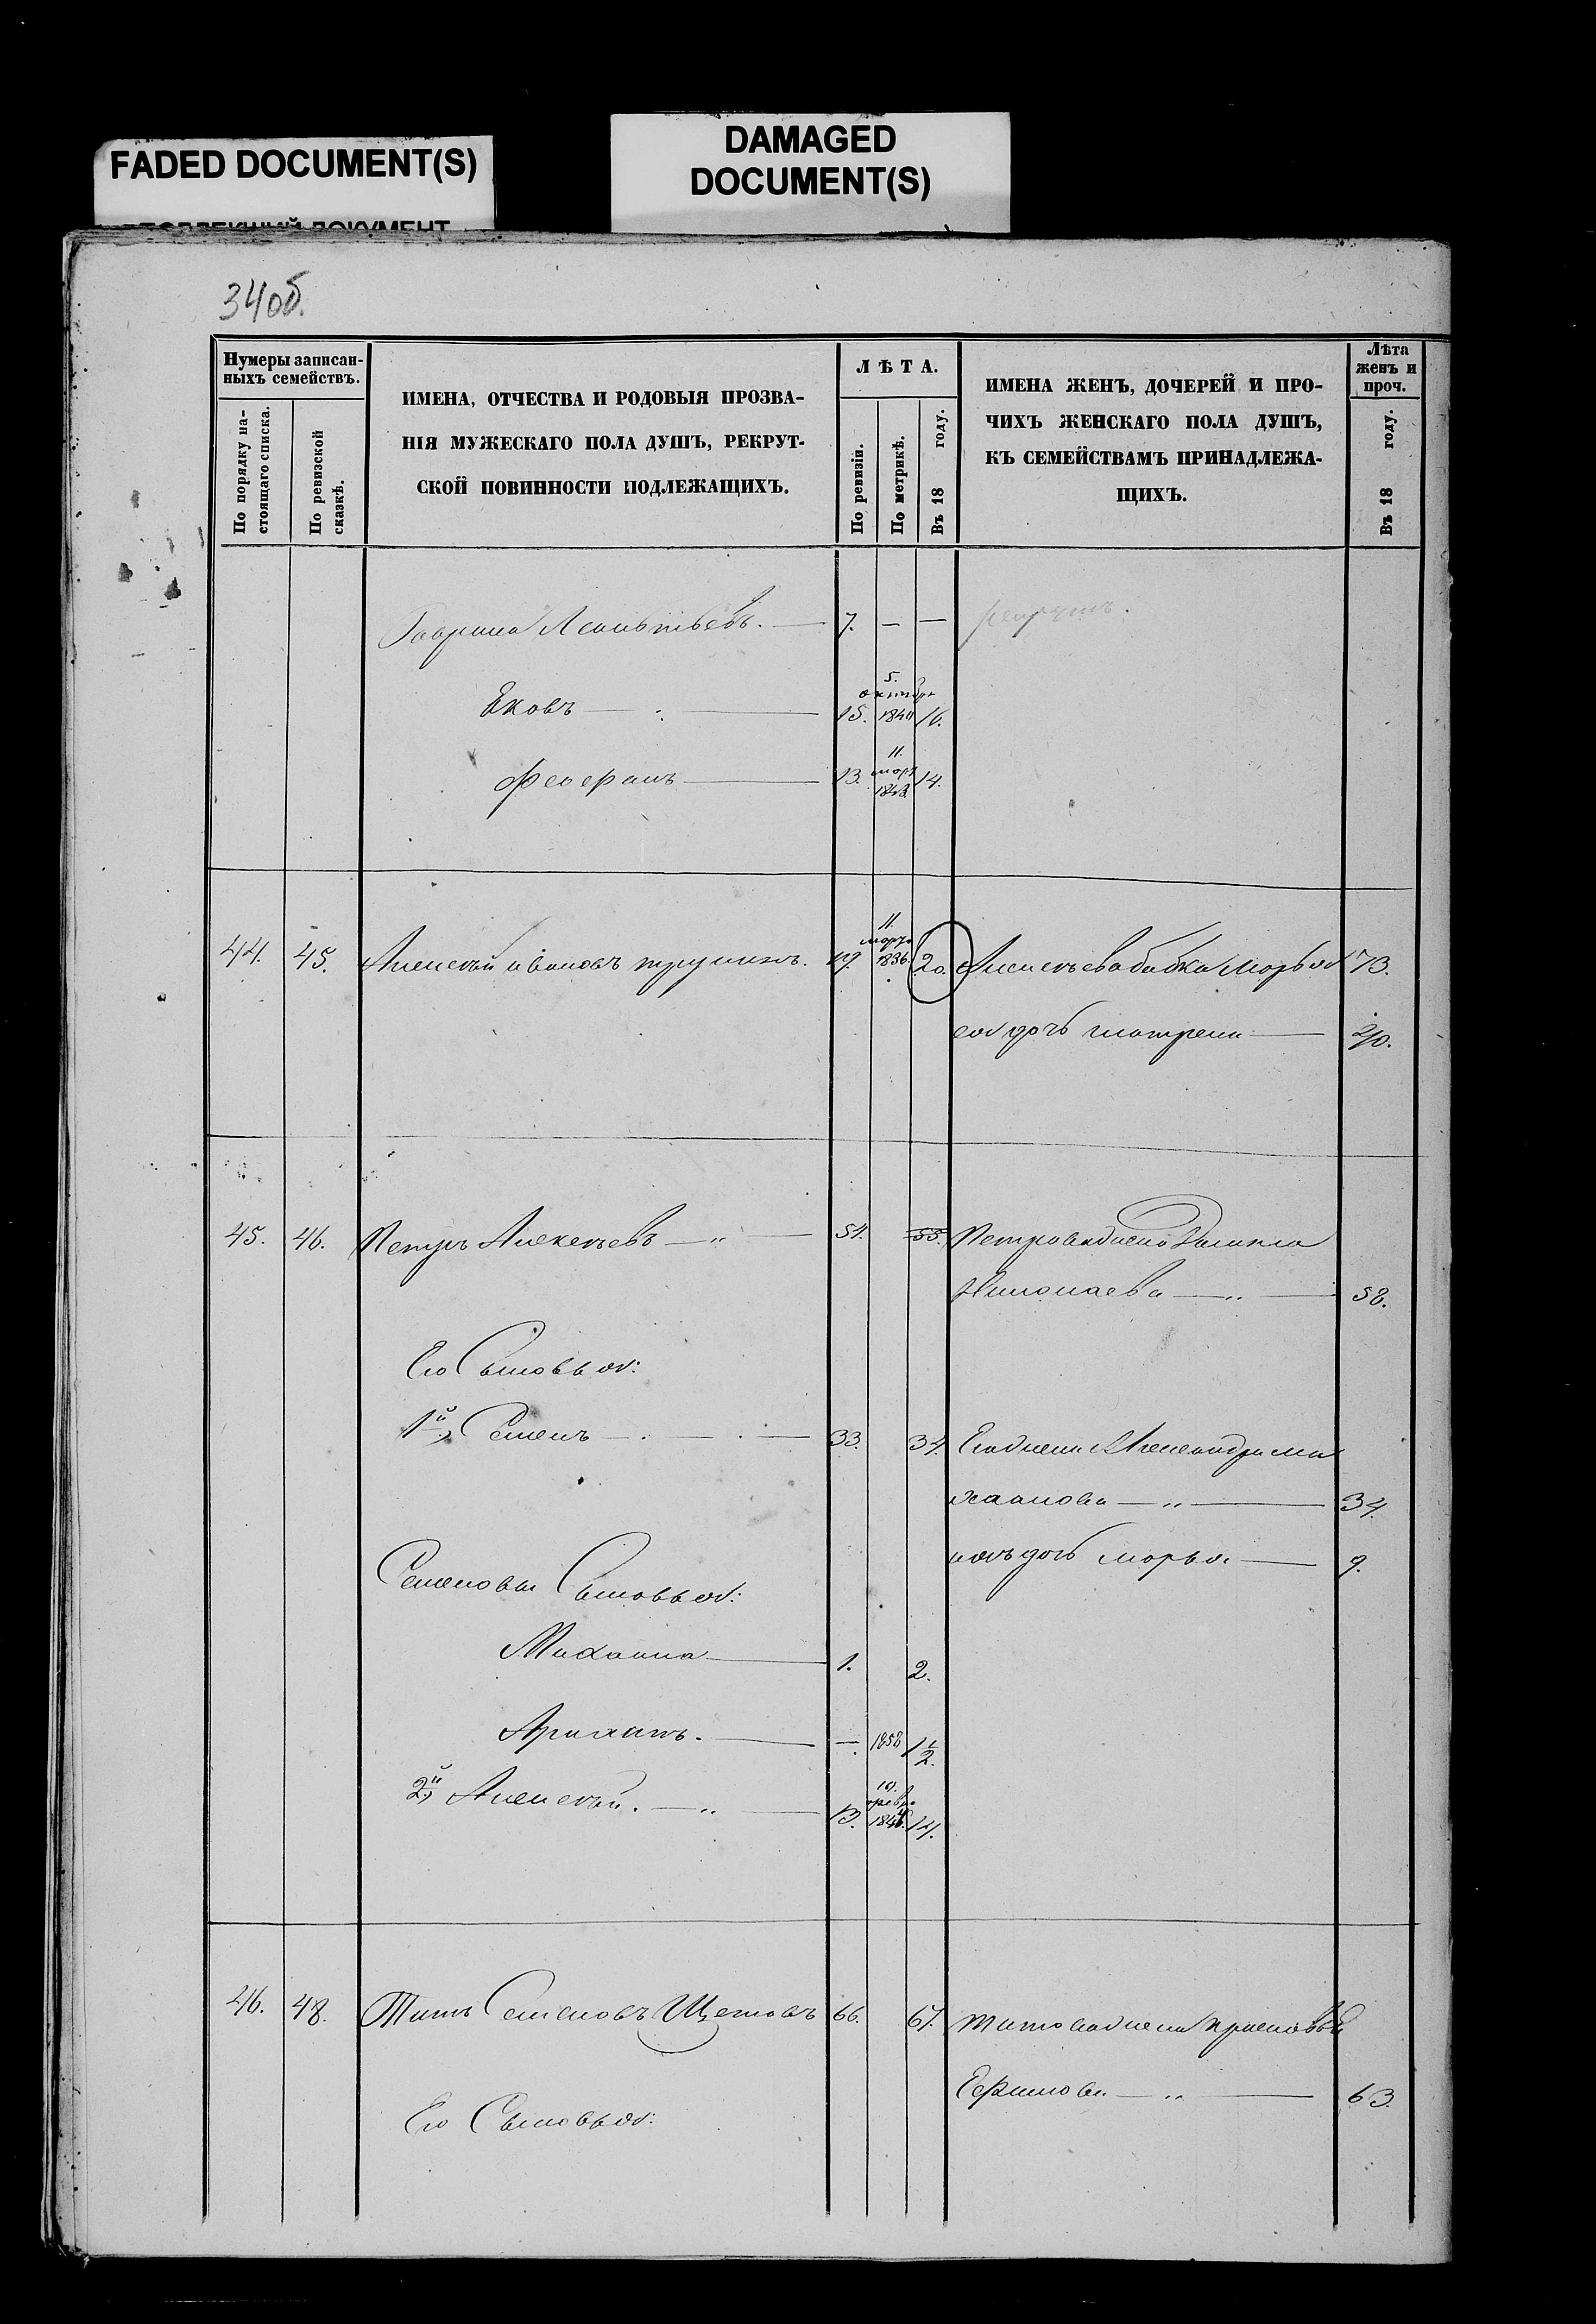 FADED DOCUMENT(S)
DAMAGED
DOCUMENT(S)
34об.
Нумеры записан-
ныхъ семействъ.
По порядку на-
стоящаго списка.
По ревизской
сказкѣ.
ИМЕНА, ОТЧЕСТВА И РОДОВЫЯ ПРОЗВА-
НІЯ МУЖЕСКАГО ПОЛА ДУШЪ, РЕКРУТ-
СКОЙ ПОВИННОСТИ ПОДЛЕЖАЩИХЪ.
ЛѢТА.
По ревизіи.
По метрикѣ.
Въ 18 году.
ИМЕНА ЖЕНЪ, ДОЧЕРЕЙ И ПРО-
ЧИХЪ ЖЕНСКАГО ПОЛА ДУШЪ,
КЪ СЕМЕЙСТВАМЪ ПРИНАДЛЕЖА-
ЩИХЪ.
Лѣта
женъ и
проч.
Въ 18 году.
Гаврила Леонтьевъ. — 7. — —
5.
октября
Яковъ — 15. 16.
11.
март
13. 1843 14.
11
марта
44. 45. Алексѣй Ивановъ 19. 1836. 20. Алексѣева бабка Марья 73.
ея дочь Матрена — 40.
45. 46. Петръ Алексѣевъ — „ — 54. 55. Петрова жена
Николаева — „ — 58.
Его Сыновья:
1й, Семенъ — 33. 34. Его жена Александра Ми
хайлова — „ — 34.
ихъ дочь Марья — 9.
Семеновы Сыновья:
Михаила — 1. 2.
—. 1858 1/2.
10.
февр
2й, Алексѣй. — „ — 13. 14.
46. 48. Титъ Семеновъ Щетовъ 66. 67. Титова жена
Ефимова — „ — 63.
Его Сыновья: